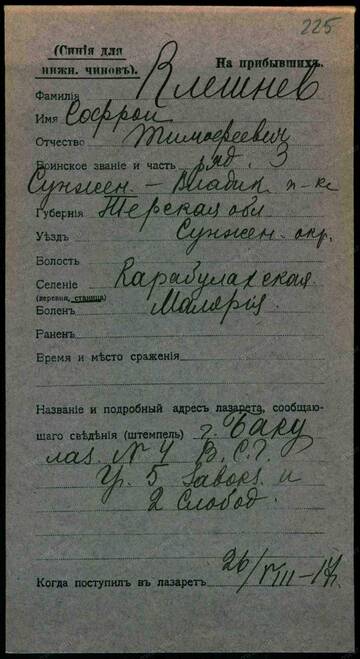 225
(Синія для
нижн. чиновъ).
На прибывшихъ.
Фамилія Клешнев
Имя Софрон
Отчество Тимофеевич
Воинское званіе и часть ряд. 3
Сунжен. - Владик. п-ка
Губернія Терская обл
Уѣздъ Сунжен. окр.
Волость
Селеніе Карабулакская
(деревня, станица)
Боленъ Малярія
Раненъ
Время и мѣсто сраженія
Названіе и подробный адресъ лазарета, сообщаю-
щаго свѣдѣнія (штемпель) г. Баку
лаз. N 4 В. С. Г.
У. 5 Завокз. и
2 Слобод.
Когда поступилъ въ лазаретъ 26/VIII-17г.